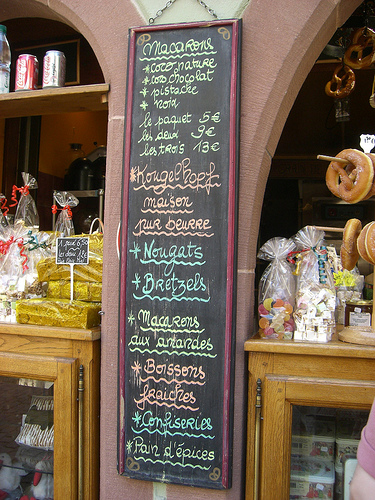 Macarons
*coco nature
*coco chocolat
*pistache
*noix
le paquet 5€
les deux 9€
les trois 13€
*Kougelhopf
maison
pur beurre
*Nougats
*Bretzels
*Macarons
aux amandes
*Boissons
fraîches
*Confiseries
*Pain d'épices